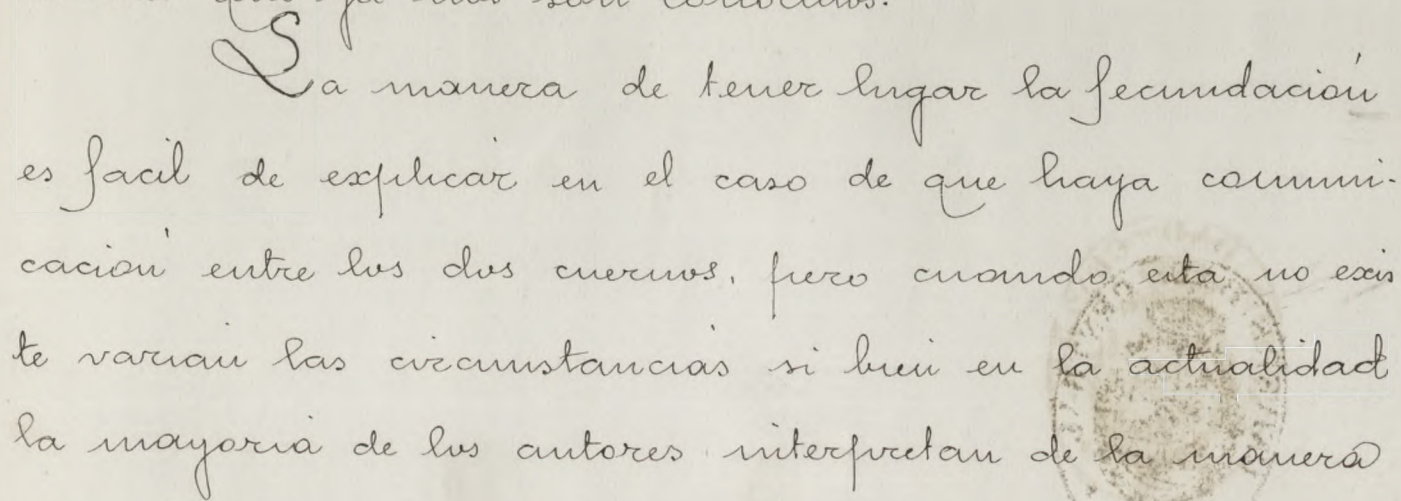 ya nos son conocidos.
La manera de tener lugar la fecundación
es facil de explicar en el caso de que haya comuni-
cación entre los dos cuernos, pero cuando esta no exis
te varian las circunstancias si bien en la actualidad
la mayoria de los autores interpretan de la manera